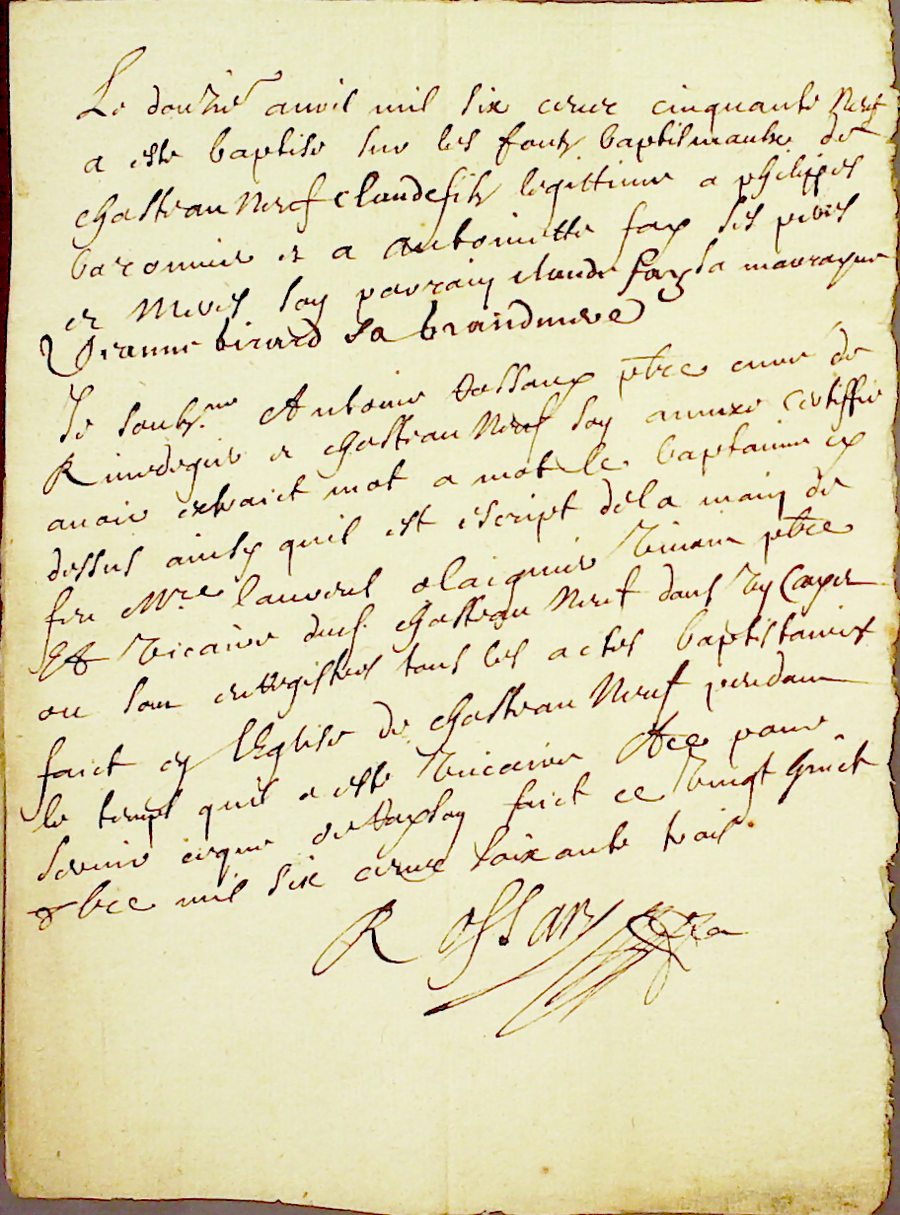 Le douzie avril mil six cent cinquante Neuf
a este baptise sur les fontz baptismaulx de
chasteau Neuf Claude filz legittime a philippes
baronnier et a Anthoinette fay ses peres
et Meres son parrain claude fay sa marrayne
Jeanne birard sa grandmere
Je soubz.ne Anthoine Rossary pbre cure de
Rivedegier et chasteau Neuf son annexe certiffie
avoir extraict mot a mot le baptaime cy
dessus ainsy quil est escript dela main de
feu Mre laurens pbre
Et Vicaire dud. chasteau Neuf dans Un Cayer
ou sont enregistres tous les actes baptistaires
faict en lEglise de chasteau Neuf pendant
le temps quil a este Vicaire pour
servir ce que de Raison faict ce Vingt huict
8bre mil six cent soixante trois
Rossary